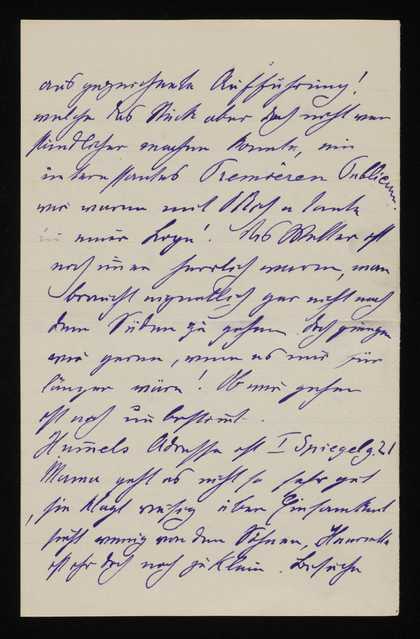 ausgezeichnete Aufführung!
welche das Stück aber doch nicht ver
ständlicher machen konnte, ein
interessantes Premièren Publicum.
wir waren mit
in einer Loge! Das Wetter ist
noch immer herrlich warm, man
braucht eigentlich gar nicht nach
dem Süden zu gehen doch gingen
wir gerne, wenn es nur für
länger wäre! Ob wir gehen
ist noch unbestimmt.
Hummels Adresse ist I Spiegelg. 21
Mama geht es nicht so sehr gut
sie klagt über Einsamkeit
sieht wenig von den Söhnen, Henriette
ist ihr doch noch zu klein. Besuche